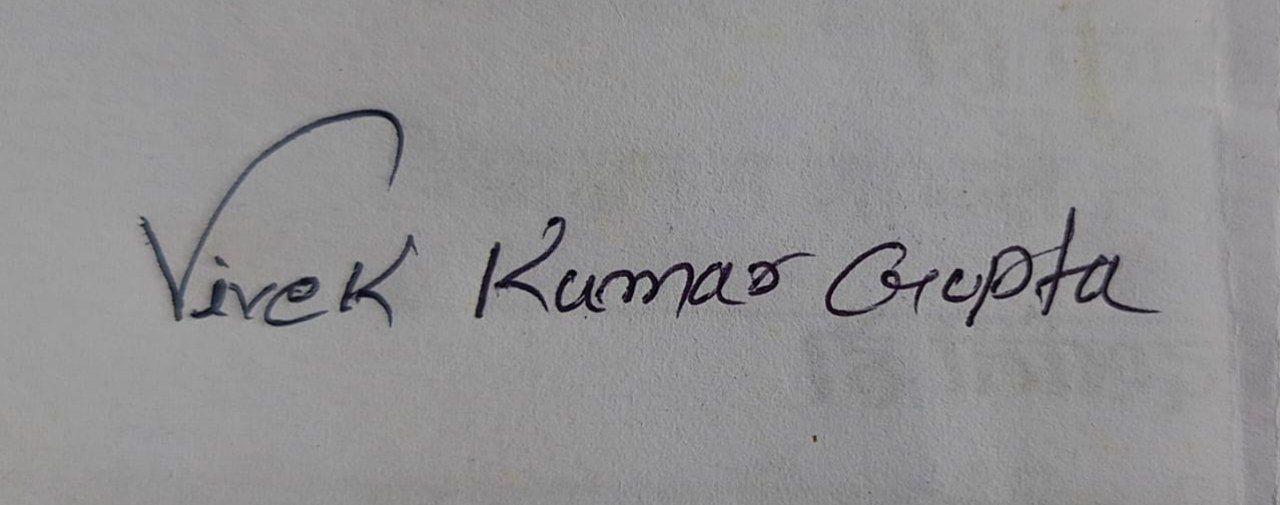 Vivek Kumar Gupta